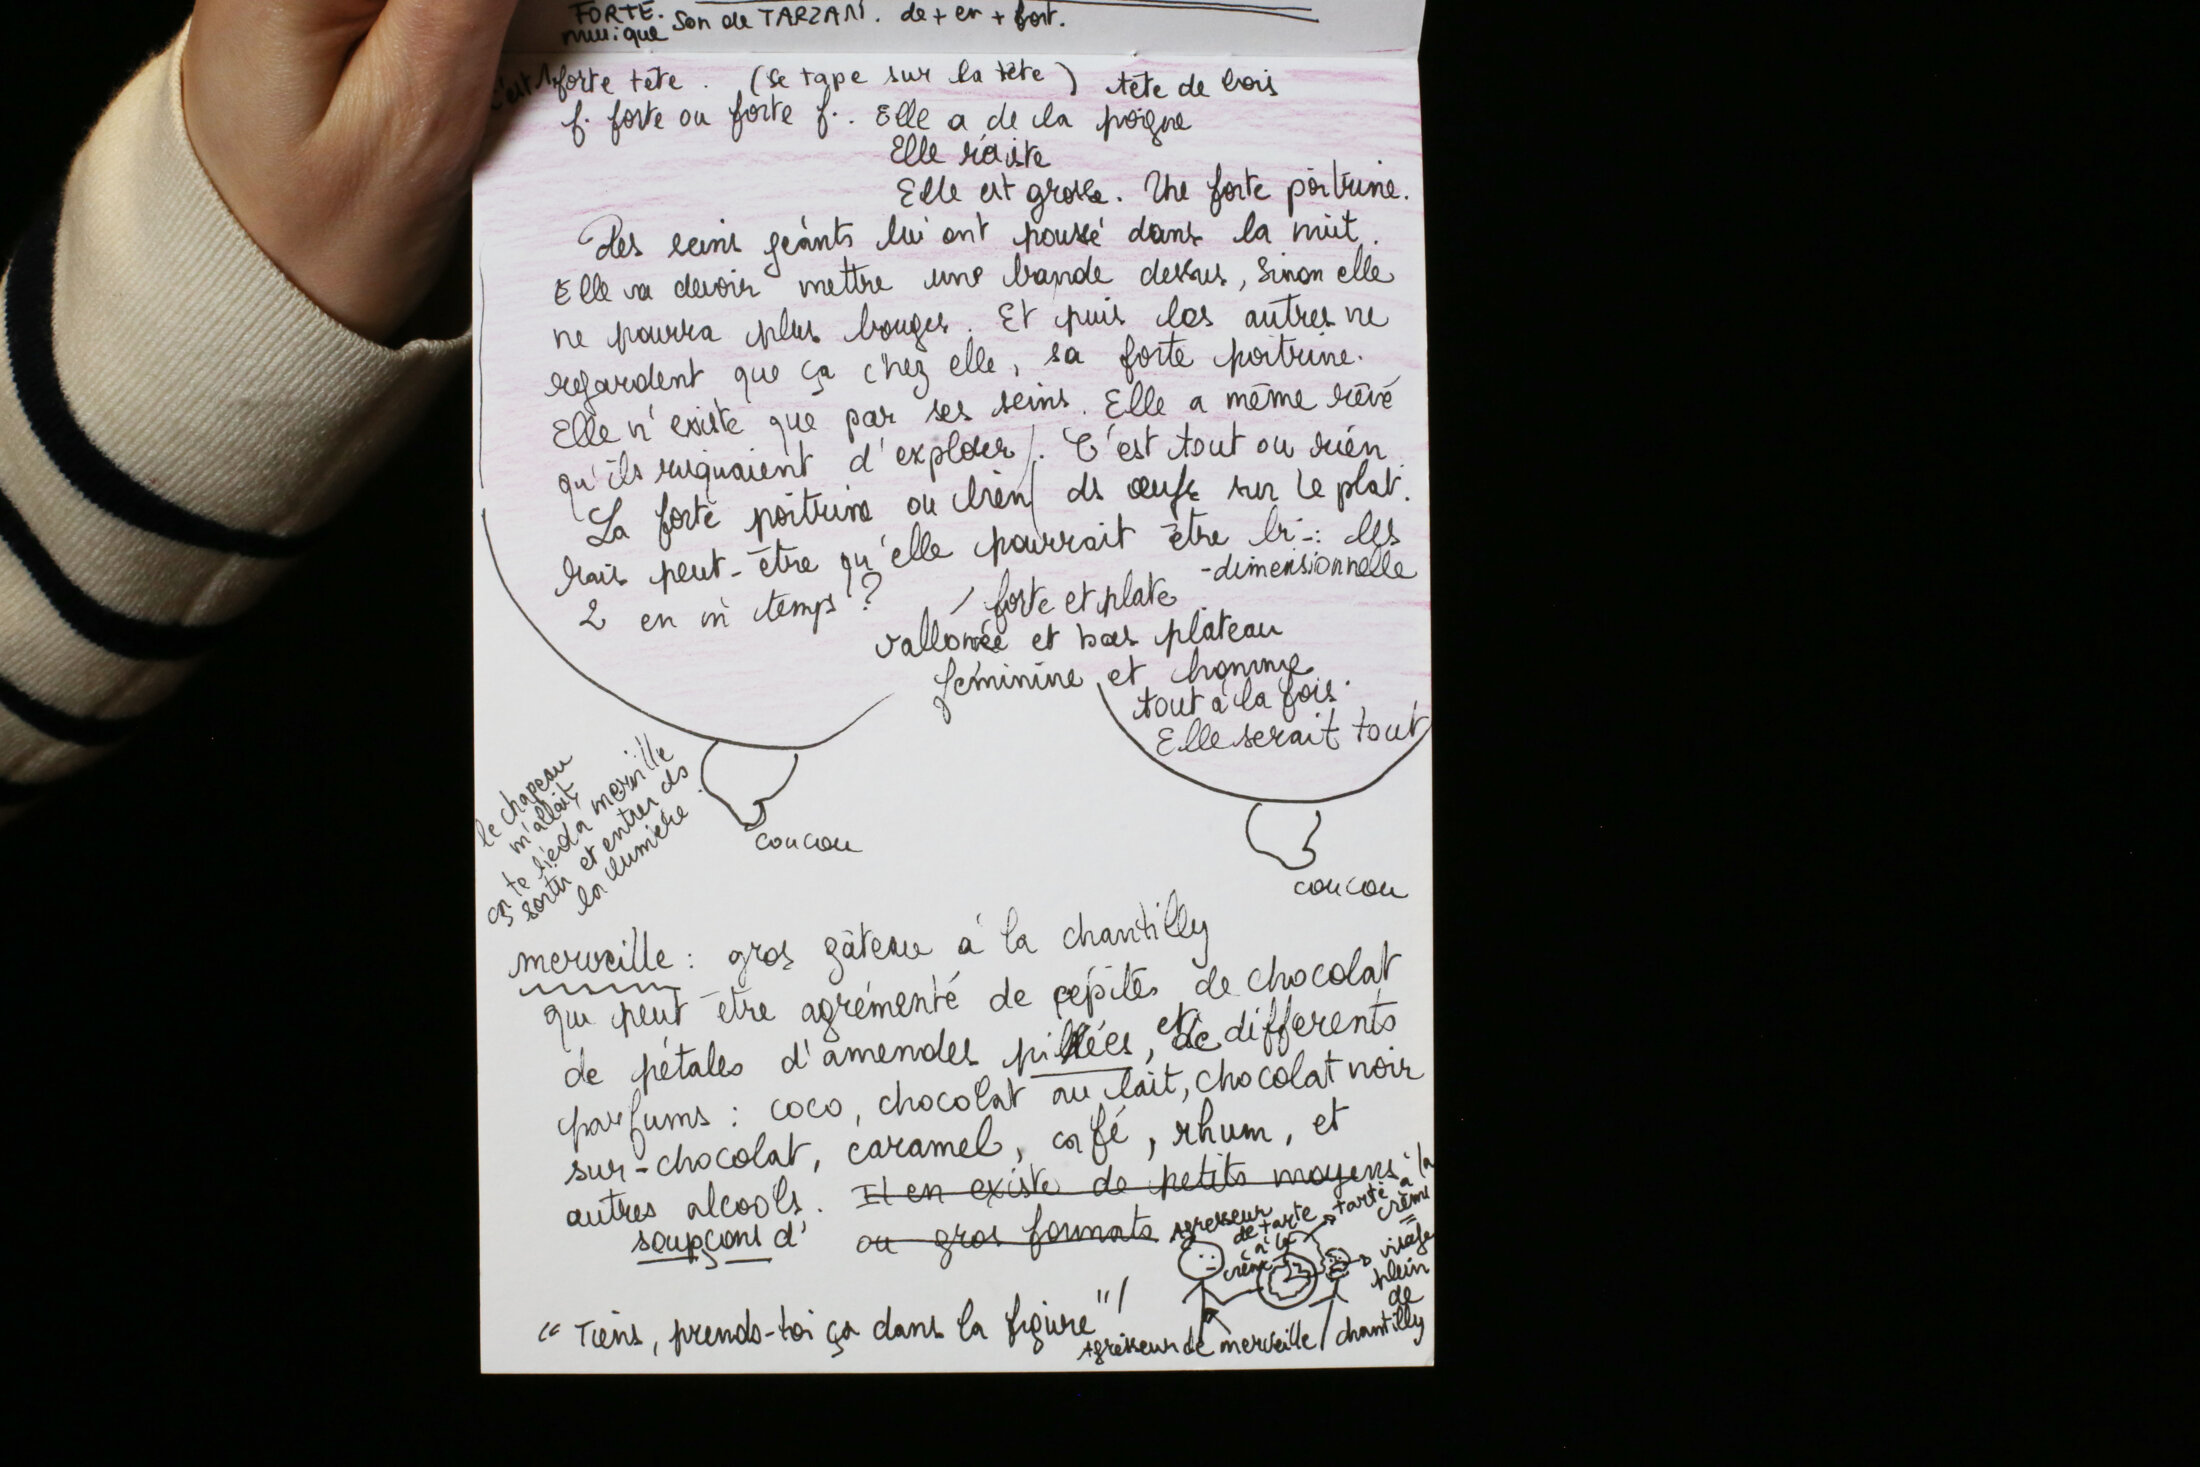 FORTE.
musique son de TARZAN. de + en + fort.
c'est 1 forte tête. (se tape sur la tête) tête de bois
f. forte ou forte f. . Elle a de la poigne
Elle résiste
Elle est grosse. Une forte poitrine.
Des seins géants lui ont poussé dans la nuit.
Elle va devoir mettre une bande dessus, sinon elle
ne pourra plus bouger. Et puis les autres ne
regardent que ça chez elle, sa forte poitrine.
Elle n'existe que par ses seins. Elle a même rêvé
qu'ils risquaient d'exploser. C'est tout ou rien.
La forte poitrine ou bien ds œufs sur le plat.
Mais peut-être qu'elle pourrait être bi-: les
-dimensionnelle
2 en m temps ?
/ forte et plate
vallonée et bas plateau
féminine et homme
tout à la fois.
Elle serait tout
le chapeau
m'allait,
ça te sied a merville
sortir et entrer ds
la lumière.
coucou
coucou
merveille : gros gâteau à la chantilly
qui peut être agrémenté de pépites de chocolat
de pétales d'amendes pilées, et de différents
parfums : coco, chocolat au lait, chocolat noir
sur-chocolat, caramel, café, rhum, et
autres alcools. Il en existe de petits moyens
soupçons d' ou gros formats
agresseur
de tarte
à la
crème
tarte à la
crème
=
visage
plein
de
chantilly
"Tiens, prends-toi ça dans la figure" !
agresseur de merveille